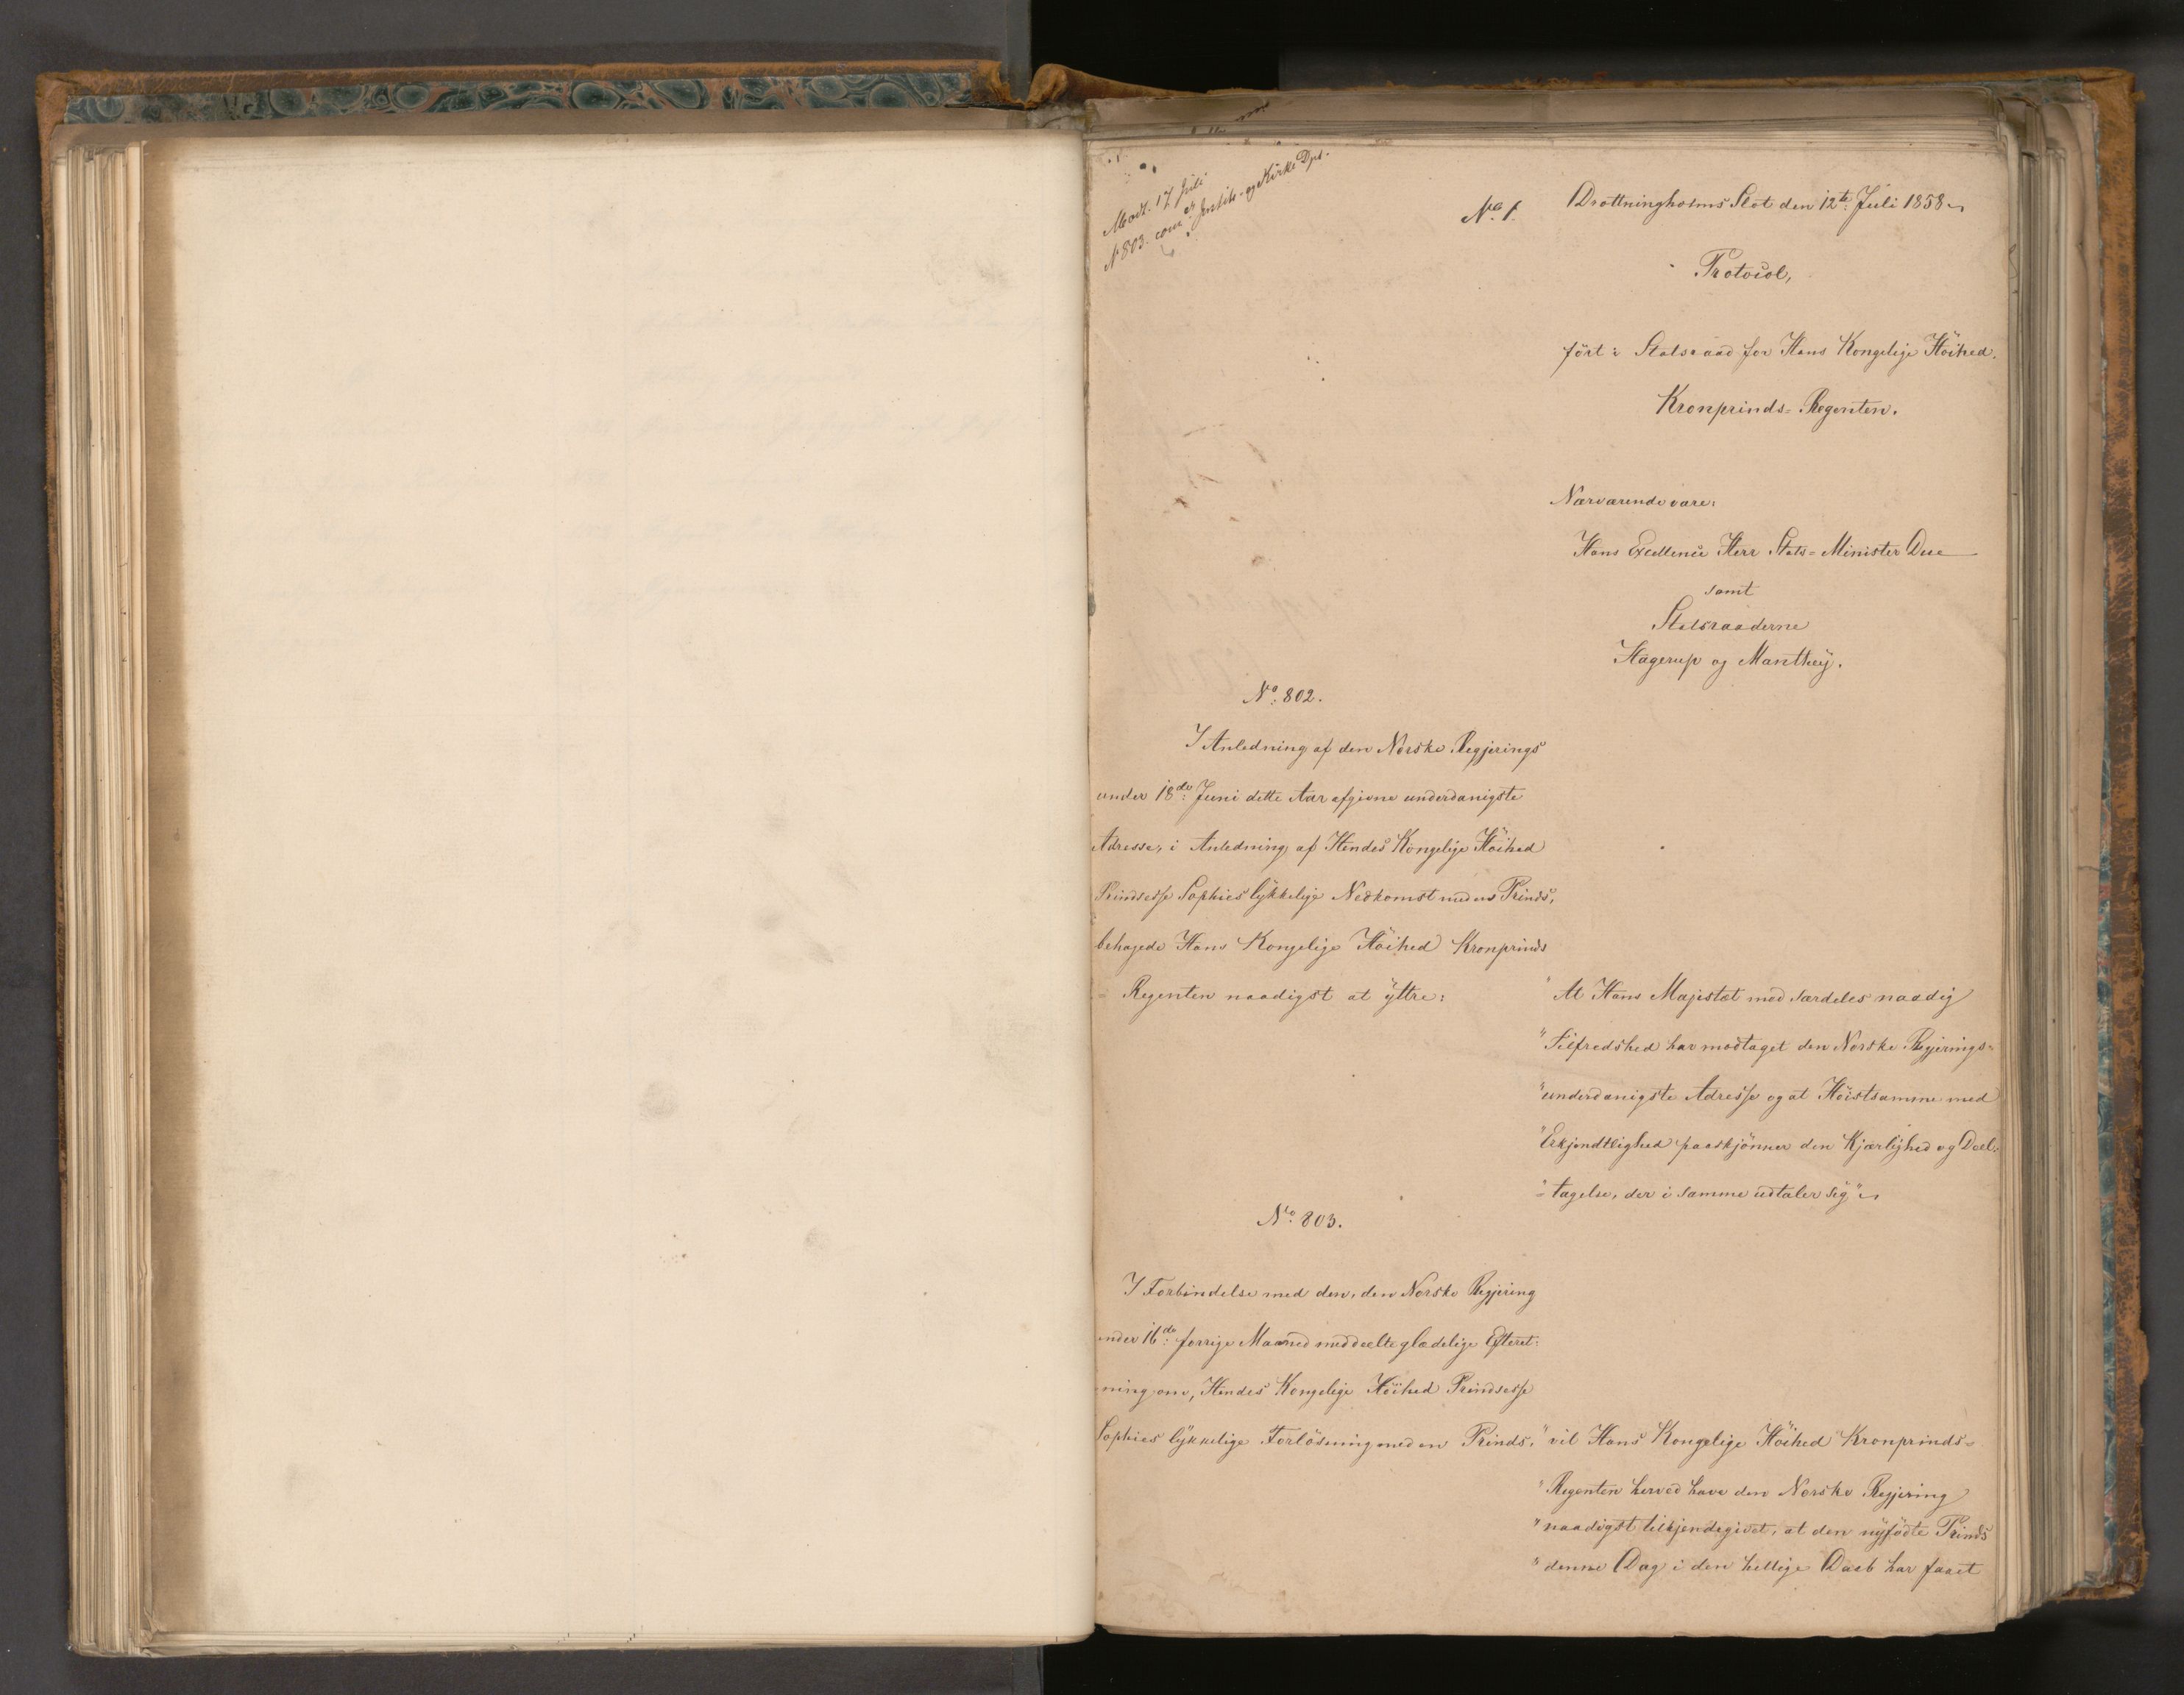 Modt. 17 Juli
N 803. com. Justits- og Kirke Dpt.
No. 1.
Drottningholms Slot den 12te Juli 1858
Protocol,
fört i Statsraad for Hans Kongelige Höihed
Kronprinds-Regenten.
Nærværende vare:
Hans Excellence Herr Stats-Minister Due
samt
Statsraaderne
Hagerup og Manthey.
No. 802.
I Anledning af den Norske Regjerings
under 18de Juni dette Aar afgivne underdanigste
Adresse, i Anledning af Hendes Kongelige Höihed
Prindsesse Sophies lykkelige Nedkomst med en Prinds,
behagede Hans Kongelige Höihed Kronprinds
= Regenten naadigst at yttre:
"At Hans Majestæt med særdeles naadig
"Tilfredshed har modtaget den Norske Regjerings-
"underdanigste Adresse og at Höistsamme med
"Erkjendtlighed paaskjönner den Kjærlighed og Deel-
"=tagelse, der i samme udtaler sig"
No. 803.
I Forbindelse med den, den Norske Regjering
under 16de forrige Maaned meddeelte glædelige Efteret-
ning om, Hendes Kongelige Höihed Prindsesse
Sophies lykkelige Forlösning med en Prinds,
"vil Hans Kongelige Höihed Kronprinds-
"Regenten herved have den Norske Regjering
"naadigst tilkjendegivet, at den nyfödte Prinds
"denne Dag i den hellige Daab har faaet